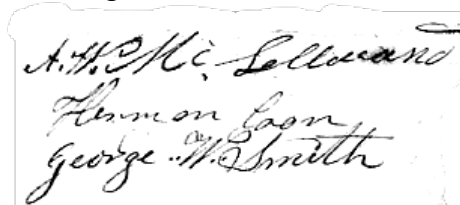 A. W. P. Mc. Lellouand
Hermon Coon
George W. Smith